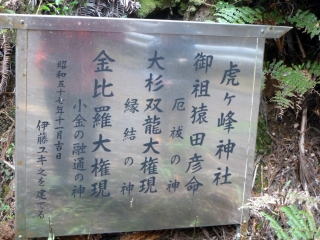 虎ヶ峰神社
御祖猿田彦命
厄祓の神
大杉双龍大権現
縁結の神
金比羅大権現
小金の融通の神
昭和五十七年十一月吉日
伊藤ユキ之を建てる